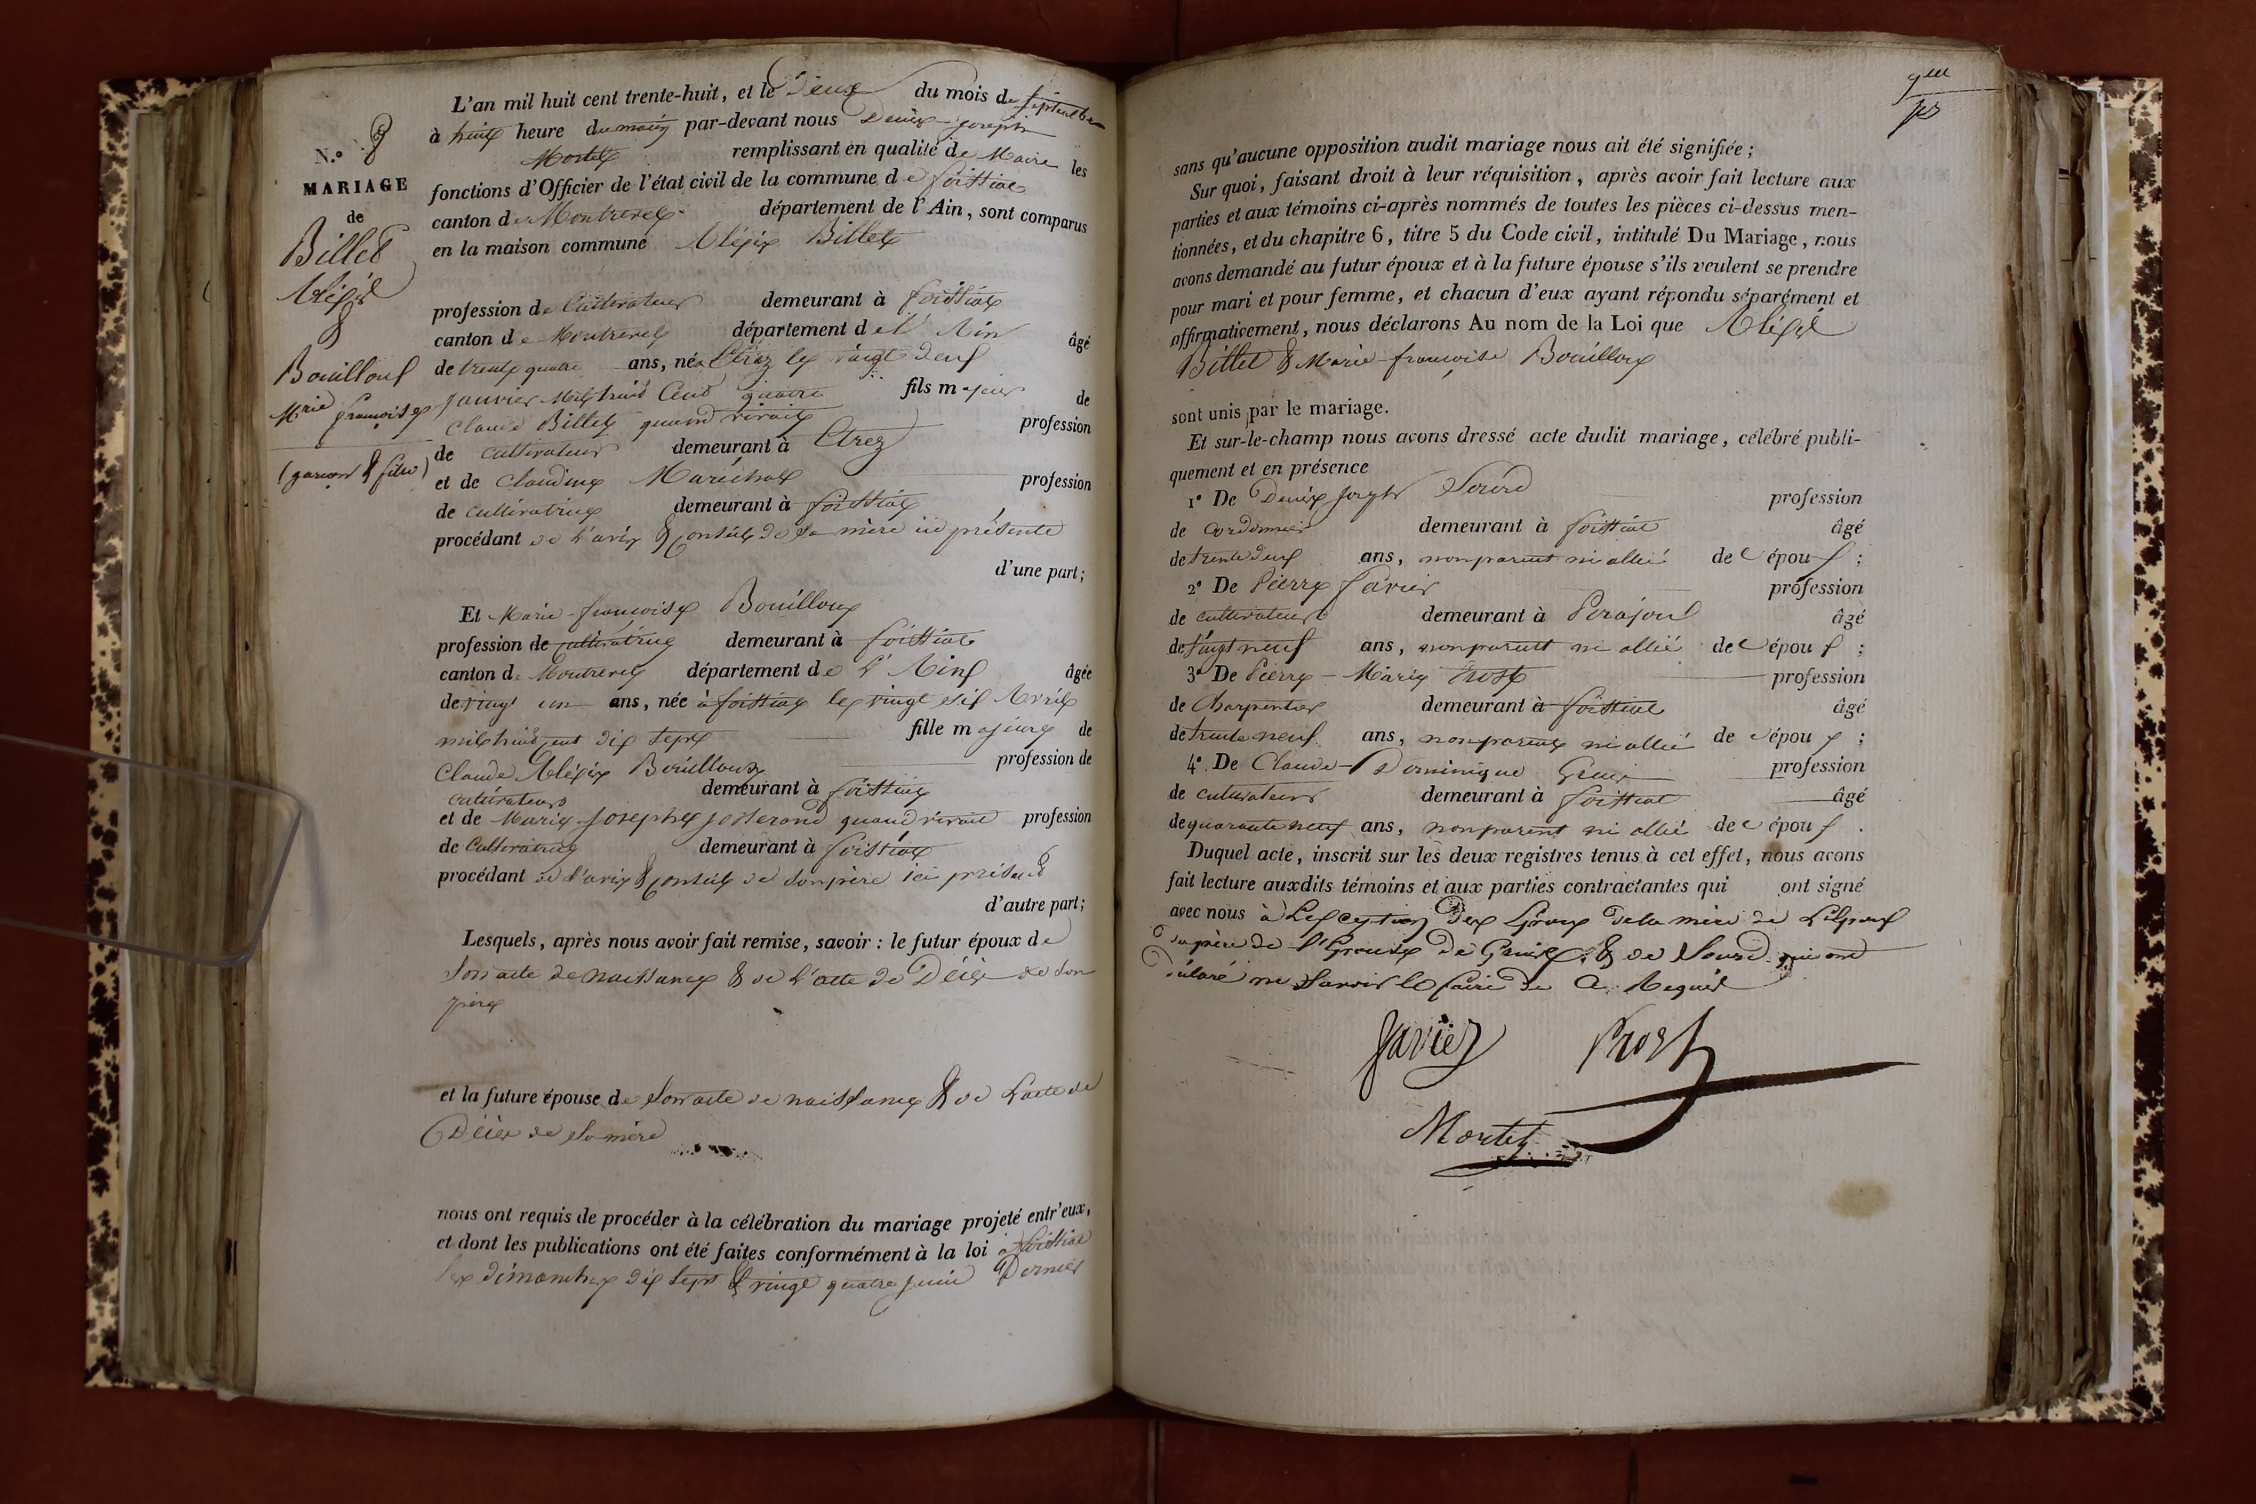 N.° 8
MARIAGE
de
Billet
Alexis
&
Bouilloux
Mrie françoise
(garçon & fille)
L'an mil huit cent trente-huit, et le Deux du mois de septembre
à huit heure du matin par-devant nous Denis-Joseph
Mortel remplissant en qualité de Maire les
fonctions d'Officier de l'état civil de la commune de foissiat
canton de Montrevel département de l'Ain, sont comparus
en la maison commune Alexis Billet
profession de Cultivateur demeurant à foissiat
canton de Montrevel département de l'Ain âgé
de trente quatre ans, né à Etrez le vingt deux
Janvier mil huit Cent quatre fils majeur de
Claude Billet quand vivait profession
de cultivateur demeurant à Etrez
et de Claudine Maréchal profession
de cultivatrice demeurant à foissiat
procédant de l'avis & conseil de sa mère ici présente
d'une part;
Et Marie-françoise Bouilloux
profession de cultivatrice demeurant à foissiat
canton de Montrevel département de l'Ain âgée
de vingt un ans, née à foissiat le vingt six Avril
mil huit cent dix sept fille majeure de
Claude Alexis Bouilloux profession de
cultivateur demeurant à foissiat
et de Marie-Josephe Josserand quand vivait profession
de Cultivatrice demeurant à foissiat
procédant de l'avis & conseil de son père ici présent
d'autre part;
Lesquels, après nous avoir fait remise, savoir : le futur époux de
son acte de naissance & de l'acte de Décès de son
père
et la future épouse de son acte de naissance & de l'acte de
Décès de sa mère
nous ont requis de procéder à la célébration du mariage projeté entr'eux,
et dont les publications ont été faites conformément à la loi à foissiat
les dimanches dix sept & vingt quatre juin Dernier
sans qu'aucune opposition audit mariage nous ait été signifiée;
Sur quoi, faisant droit à leur réquisition, après avoir fait lecture aux
parties et aux témoins ci-après nommés de toutes les pièces ci-dessus men-
tionnées, et du chapitre 6, titre 5 du Code civil, intitulé Du Mariage, nous
avons demandé au futur époux et à la future épouse s'ils veulent se prendre
pour mari et pour femme, et chacun d'eux ayant répondu séparément et
affirmativement, nous déclarons Au nom de la Loi que Alexis
Billet & Marie-françoise Bouilloux
sont unis par le mariage.
Et sur-le-champ nous avons dressé acte dudit mariage, célébré publi-
quement et en présence
1° De Denis Joseph Sourd profession
de cordonnier demeurant à foissiat âgé
de trente deux ans, non parent ni allié de l'époux;
2° De Pierre favier profession
de cultivateur demeurant à Perajoux âgé
de vingt neuf ans, non parent ni allié de l'époux;
3° De Pierre-Marie Prost profession
de Charpentier demeurant à foissiat âgé
de trente neuf ans, non parent ni allié de l'époux;
4° De Claude-Dominique profession
de cultivateur demeurant à foissiat âgé
de quarante neuf ans, non parent ni allié de l'époux.
Duquel acte, inscrit sur les deux registres tenus à cet effet, nous avons
fait lecture auxdits témoins et aux parties contractantes qui ont signé
avec nous à l'exception des Epoux de la mère de l'Epoux
du père de l'Epouse de & de Sourd qui ont
déclaré ne savoir le faire de ce Requis
favier Prost
Mortel